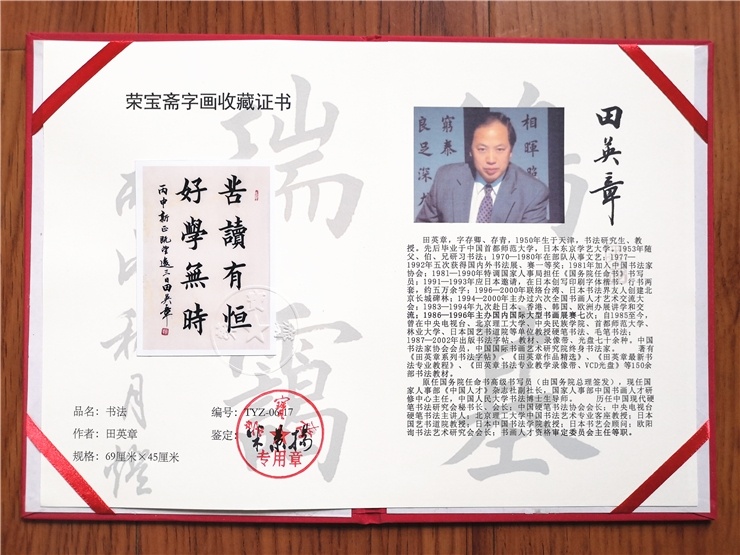 荣宝斋字画收藏证书
苦读有恒
好学无时
丙申新正既望后三日田英章
品名：书法
作者：田英章
规格：69厘米×45厘米
编号：TYZ-0617
鉴定：
专用章
田英章
田英章，字存卿、存青，1950年生于天津，书法研究生、教
授。先后毕业于中国首都师范大学，日本东京学艺大学。1953年随
父、伯、兄研习书法；1970—1980年在部队从事文艺；1977—
1992年五次获得国内外书法展、赛一等奖；1981年加入中国书法家
协会；1981—1990年特调国家人事局担任《国务院任命书》书写
员；1991—1993年应日本邀请，在日本创写印刷字体楷书、行书两
套，约五万余字；1996—2000年联络台湾、日本书法界友人创建北
京长城碑林；1994—2000年主办过六次全国书画人才艺术交流大
会；1983—1994年九次赴日本、香港、韩国、欧洲办展讲学和交
流；1986—1996年主办国内国际大型书画展赛七次；自1985至今，
曾在中央电视台、北京理工大学、中央民族学院、首都师范大学、
林业大学、日本国艺书道院等单位教授硬笔书法、毛笔书法；
1987—2002年出版书法字帖、教材、录像带、光盘七十余种。中国
书法家协会会员，中国国际书画艺术研究院终身书法家。 著有
《田英章系列书法字帖》、《田英章作品精选》、《田英章最新书
法专业教程》、《田英章书法专业教学录像带、VCD光盘》等150余
部书法教材。
原任国务院任命书高级书写员（由国务院总理签发），现任国
家人事部《中国人才》杂志社副社长，国家人事部中国书画人才研
修中心主任，中国人民大学书法博士生导师。 历任中国现代硬
笔书法研究会秘书长、会长；中国硬笔书法协会会长；中央电视台
硬笔书法主讲人；北京理工大学中国书法艺术专业客座教授；日本
国艺书道院教授；日本中国书法学院教授；日本书艺会顾问；欧阳
询书法艺术研究会会长；书画人才资格审定委员会主任等职。